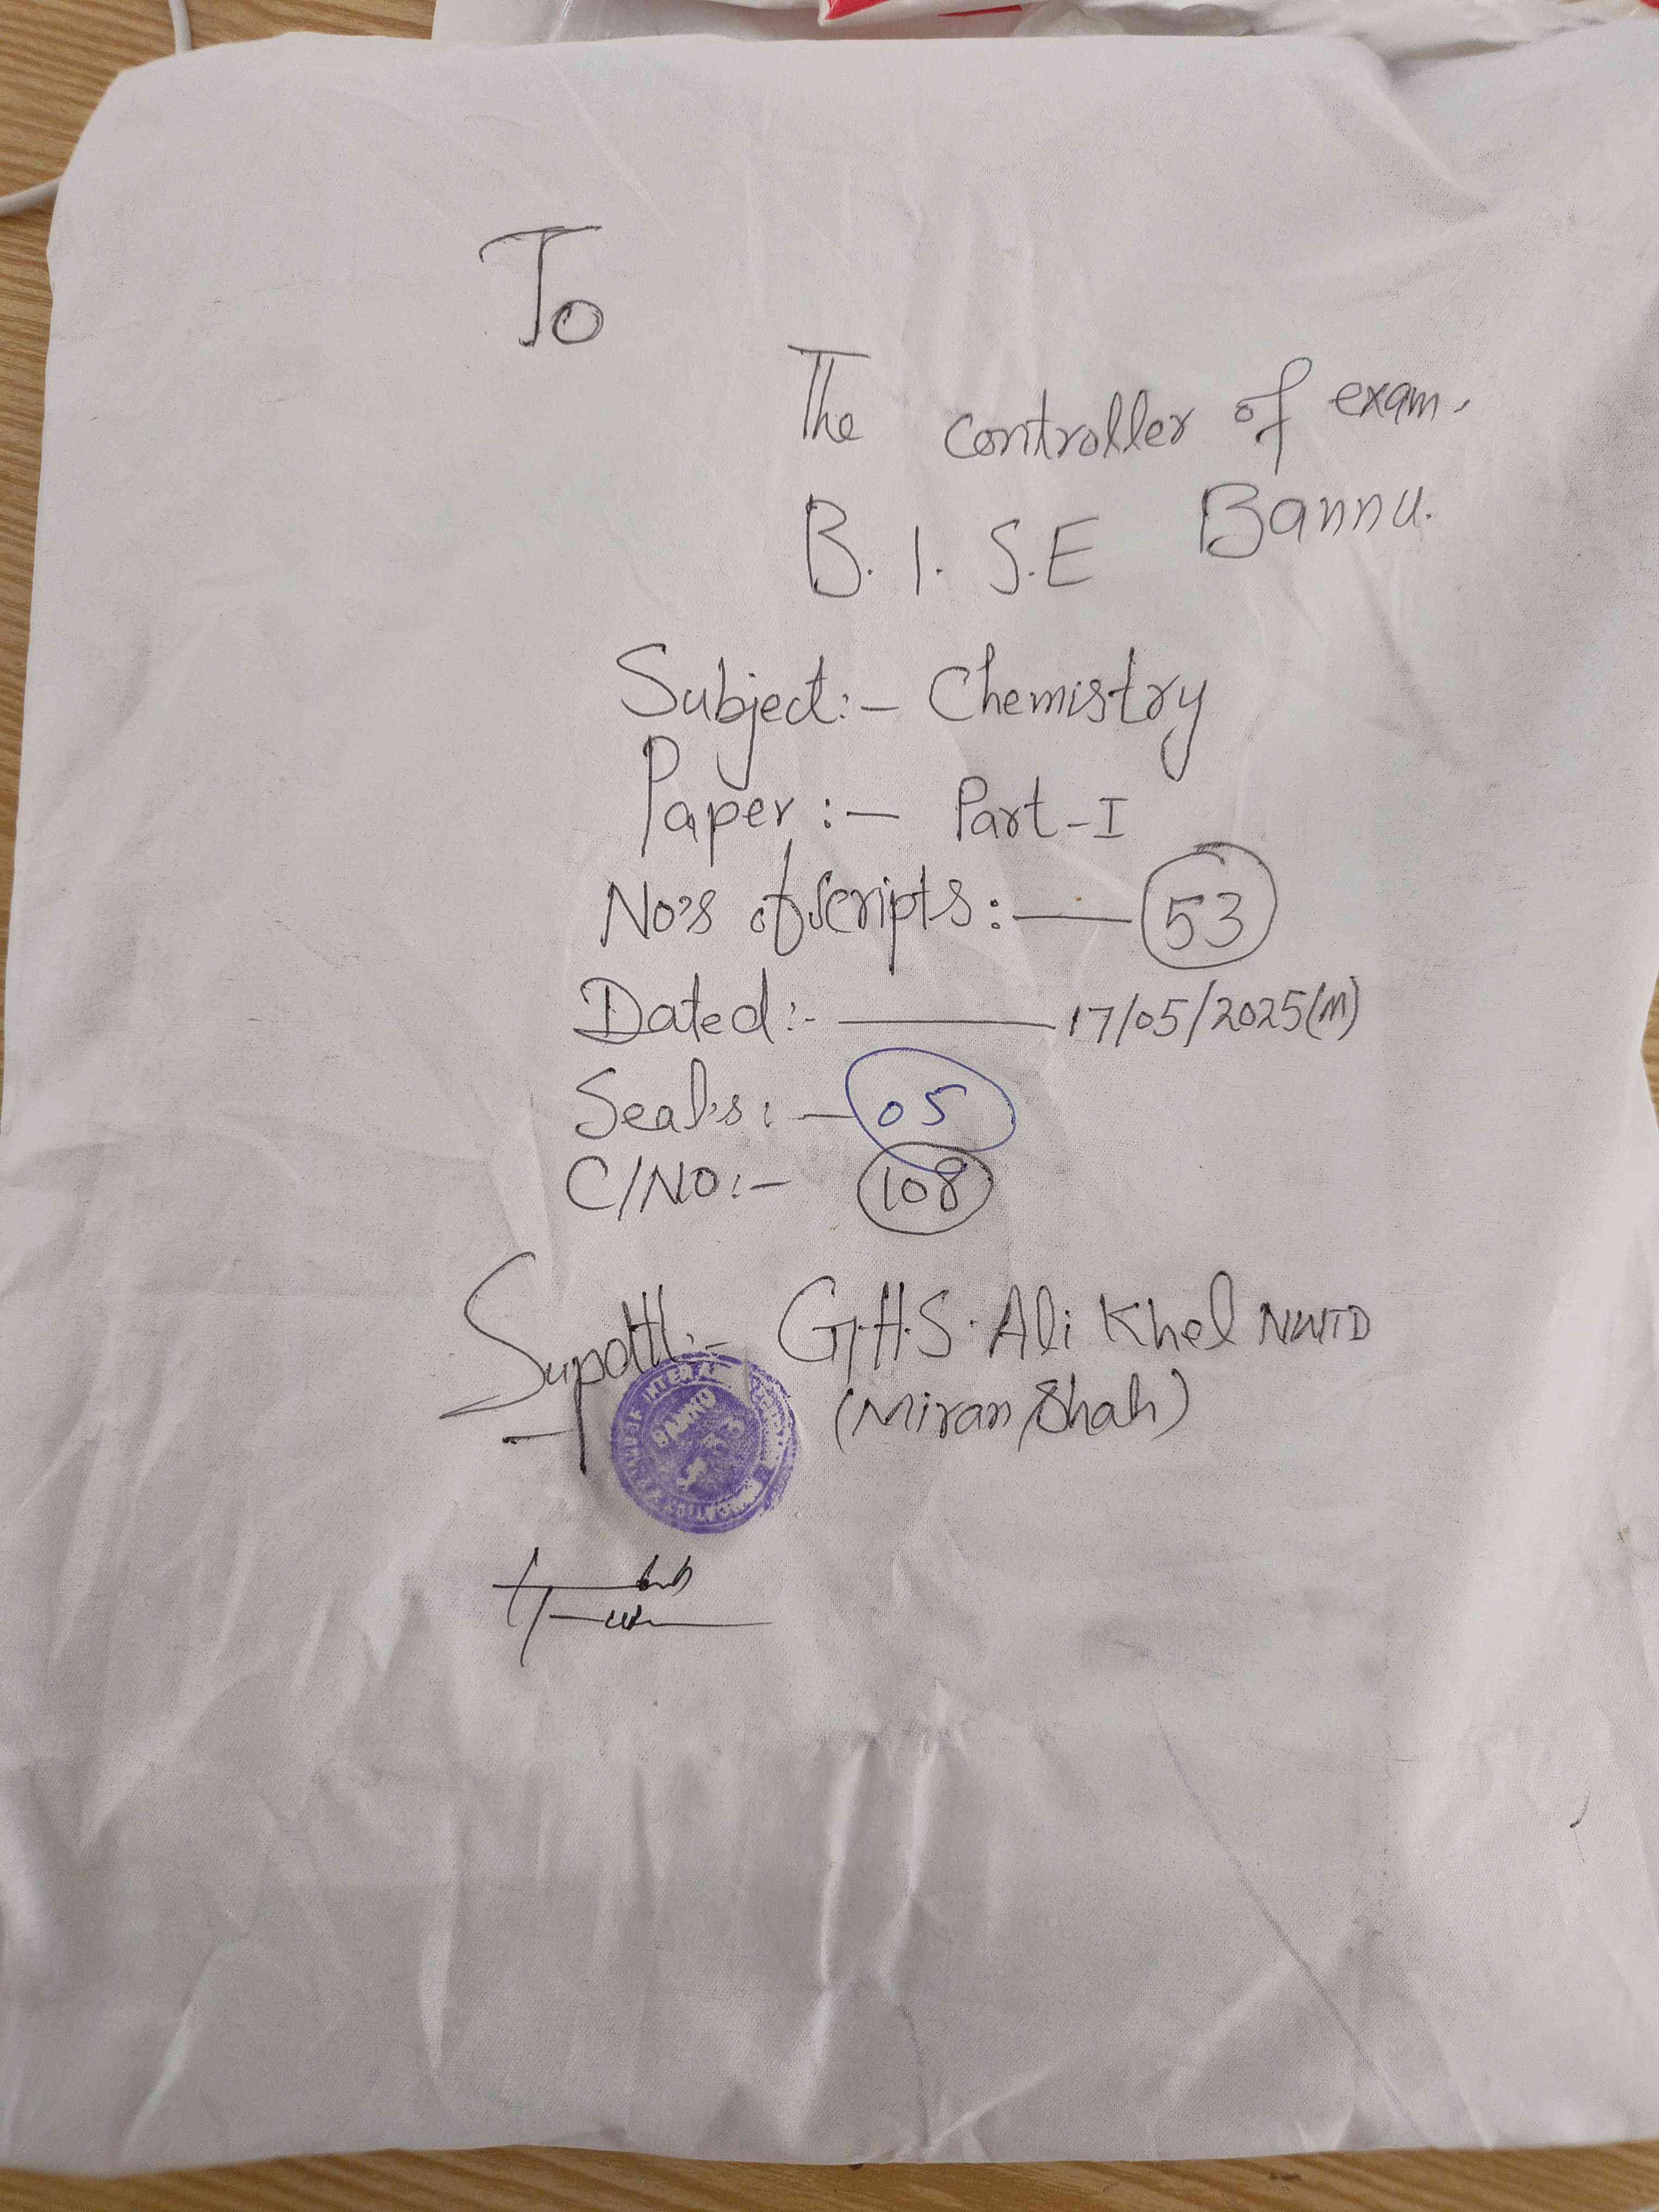 To
The controller of exam.
B.I.S.E Bannu.
Subject:- Chemistry
Paper:- Part-I
No's of scripts:- 53
Dated:- 17/05/2025(M)
Seal's:- 05
C/NO:- 108
Supdtt:- G.H.S. Ali Khel NWTD
(Miran Shah)
BANNU